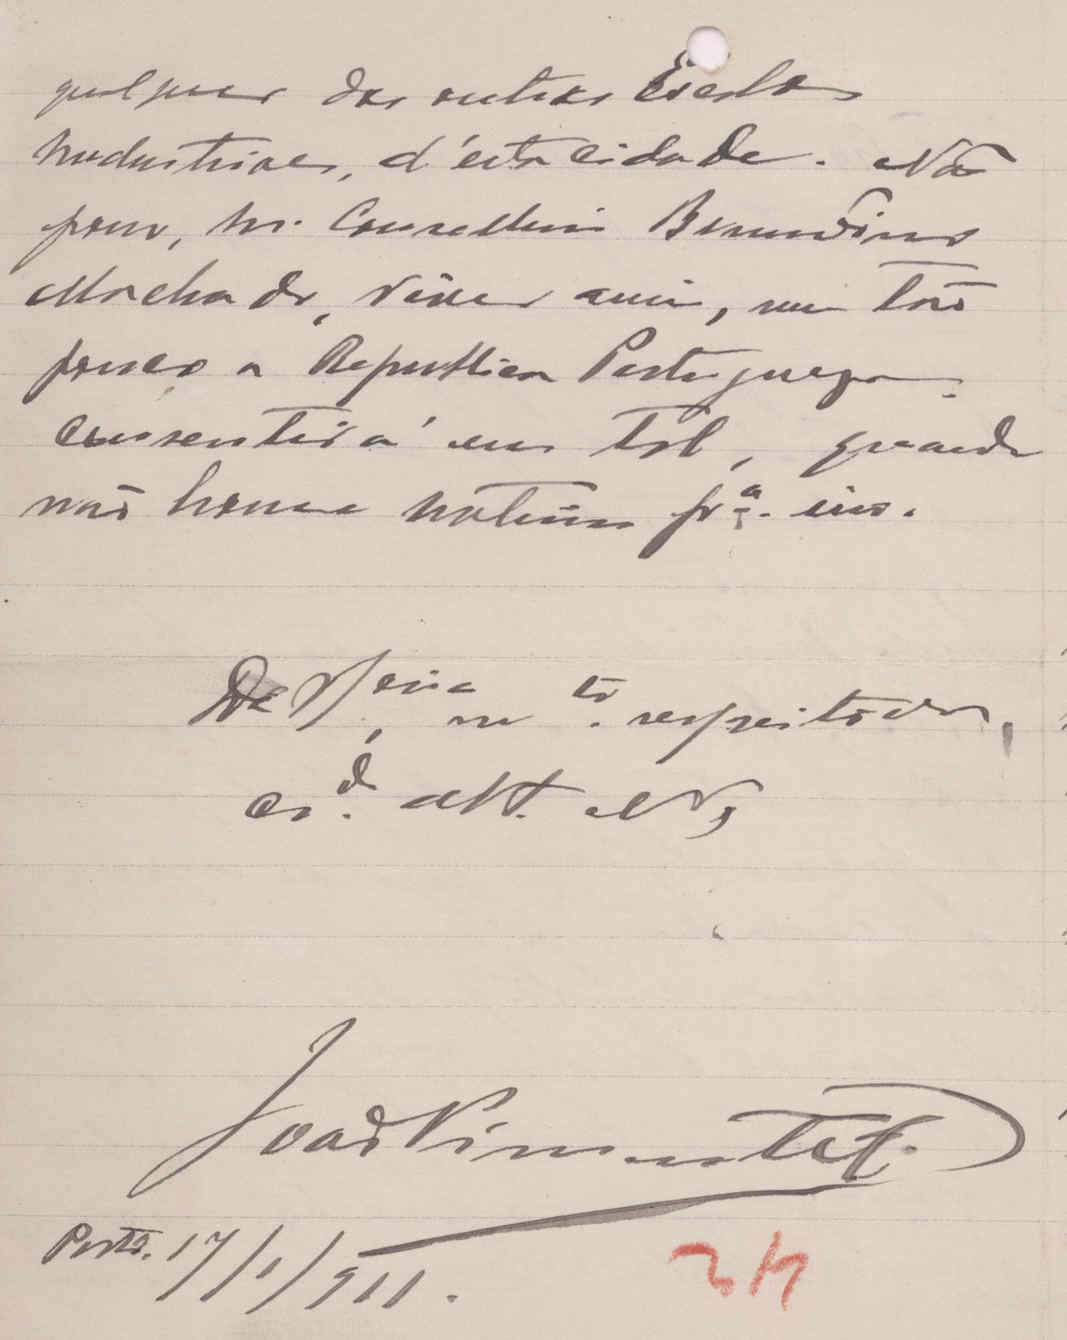 qualquer das outras Escolas
Industriaes, d'esta cidade. Não
posso, Sr. Conselheiro Bernardino
Machado, viver assim, nem tão
pouco a Republica Portugueza
consentirá em tal, quando
não houve motivos pª. isso.
De V. Exia mto. respeitador,
crd. att. e Vr.
João Pimentel
Porto. 17/1/911.